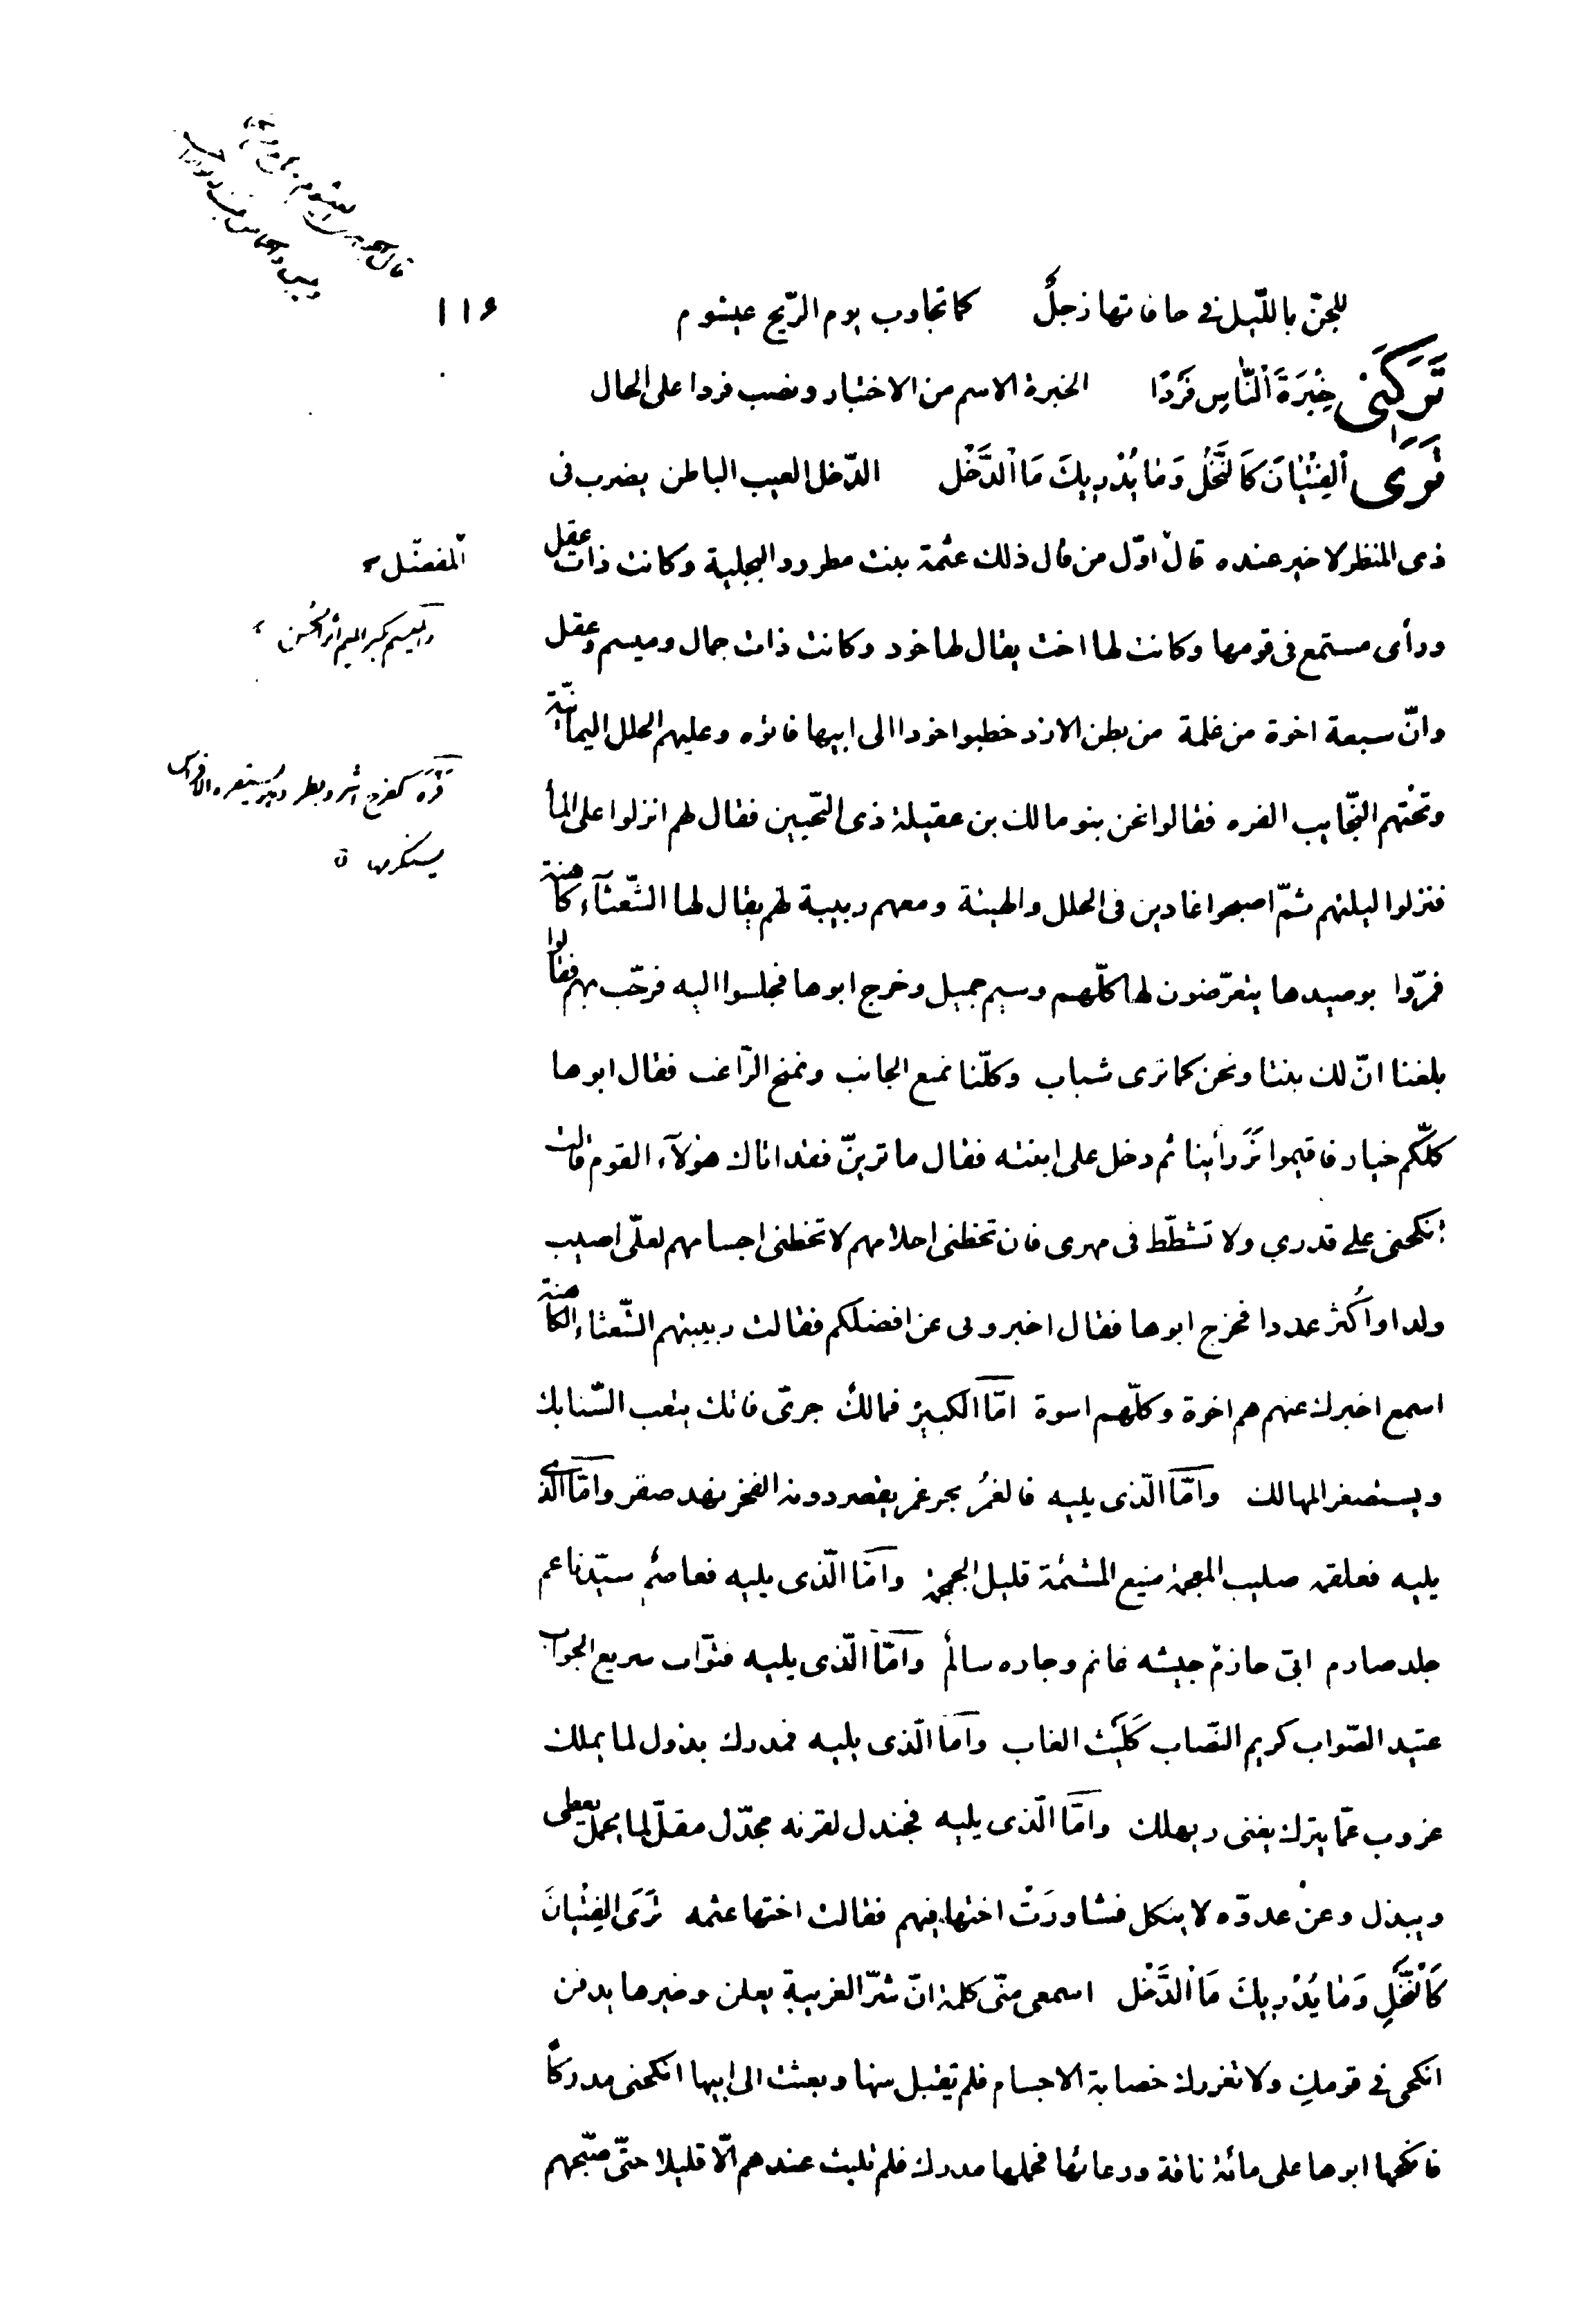 للجنّ باللّيل في حافاتها زجلٌ كما تجاوب يوم الرّيح عيشوم
١١٦
تَرَكَتْنى خِبْرَةَ النّاسِ فَرْدًا الخبرة الاسم من الاختبار ونصب فردا على الحال
تَرَى الفِتْيَانَ كَالنَّخْلِ وَمَا يُدْرِيكَ مَا الدَّخْل الدّخل العيب الباطن يضرب فى
ذى المنظر لا خير عنده قال اوّل من قال ذلك عثمة بنت مطرود البجلية وكانت ذات عقل
المفضّل
ورأى مستمع فى قومها وكانت لها اخت يقال لها خود وكانت ذات جمال وميسم وعقل
والميسم بكسر الميم أثر الحُسن
وانّ سبعة اخوة من غلمة من بطن الازد خطبوا خودا الى ابيها فاتوه وعليهم الحلل اليمانيّة
وتحتهم النّجايب الفره فقالوا نحن بنو مالك بن عقيلة ذى النّحيين فقال لهم انزلوا على المأ
فَرِهَ كفرح اشر وبطر
فنزلوا ليلتهم ثمّ اصبحوا غادين فى الحلل والهيئة ومعهم ربيبة لهم يقال لها الشّعثآء كاهنة
فمرّوا بوصيدها يتعرّضون لها كلّهم وسيم جميل وخرج ابوها فجلسوا اليه فرحّب بهم فقالوا
بلغنا انّ لك بنتا ونحن كما ترى شباب وكلّنا نمنع الجانب ونمنح الرّاغب فقال ابوها
كلّكم خيار فاقيموا نَرَ رأينا ثم دخل على ابنته فقال ما ترينّ فقد اتاك هؤلآء القوم قالت
انكحنى على قدري ولا تشطّط فى مهرى فان تخطنى احلامهم لا تخطنى اجسامهم لعلّى اصيب
ولدا واُكثر عددا فخرج ابوها فقال اخبرونى عن افضلكم فقالت ربيبتهم الشّعثاء الكاهنة
اسمع اخبرك عنهم هم اخوة وكلّهم اسوة امّا الكبير فمالكٌ جرىّ فاتك يتعب السّنابك
ويستصغر المهالك وامّا الّذى يليه فالغمرُ بحر غمر يقصر دونه الفخر نهد صقر وامّا الّذى
يليه فعلقمة صليب المعجمة منيع المشتمة قليل الجمجمة وامّا الّذى يليه فعاصم سيّد ناعم
جلد صارم ابىّ حازم جيشه غانم وجاره سالم وامّا الّذى يليه فثوّاب سريع الجواب
عتيد الصّواب كريم النّصاب كَلَيْث الغاب وامّا الّذى يليه فمدرك بذول لما يملك
عزوب عمّا يترك يفنى ويهلك وامّا الّذى يليه فجندل لقرنه مجدّل مقلّ لما يحمل يعطى
ويبذل وعن عدوّه لا ينكل فشاورَتْ اختها فيهم فقالت اختها عثمه تَرَى الفِتْيانَ
كَالنَّخْلِ وَمَا يُدْرِيكَ مَا الدَّخْل اسمعى منّى كلمة انّ شرّ الغريبة يعلن وخيرها يدفن
انكحى في قومكِ ولا تغررك خصابة الاجسام فلم تقبل منها وبعثت الى ابيها انكحنى مدركًا
فانكحها ابوها على مائة ناقة ورعائها فحملها مدرك فلم تلبث عندهم الّا قليلا حتّى صبّحهم